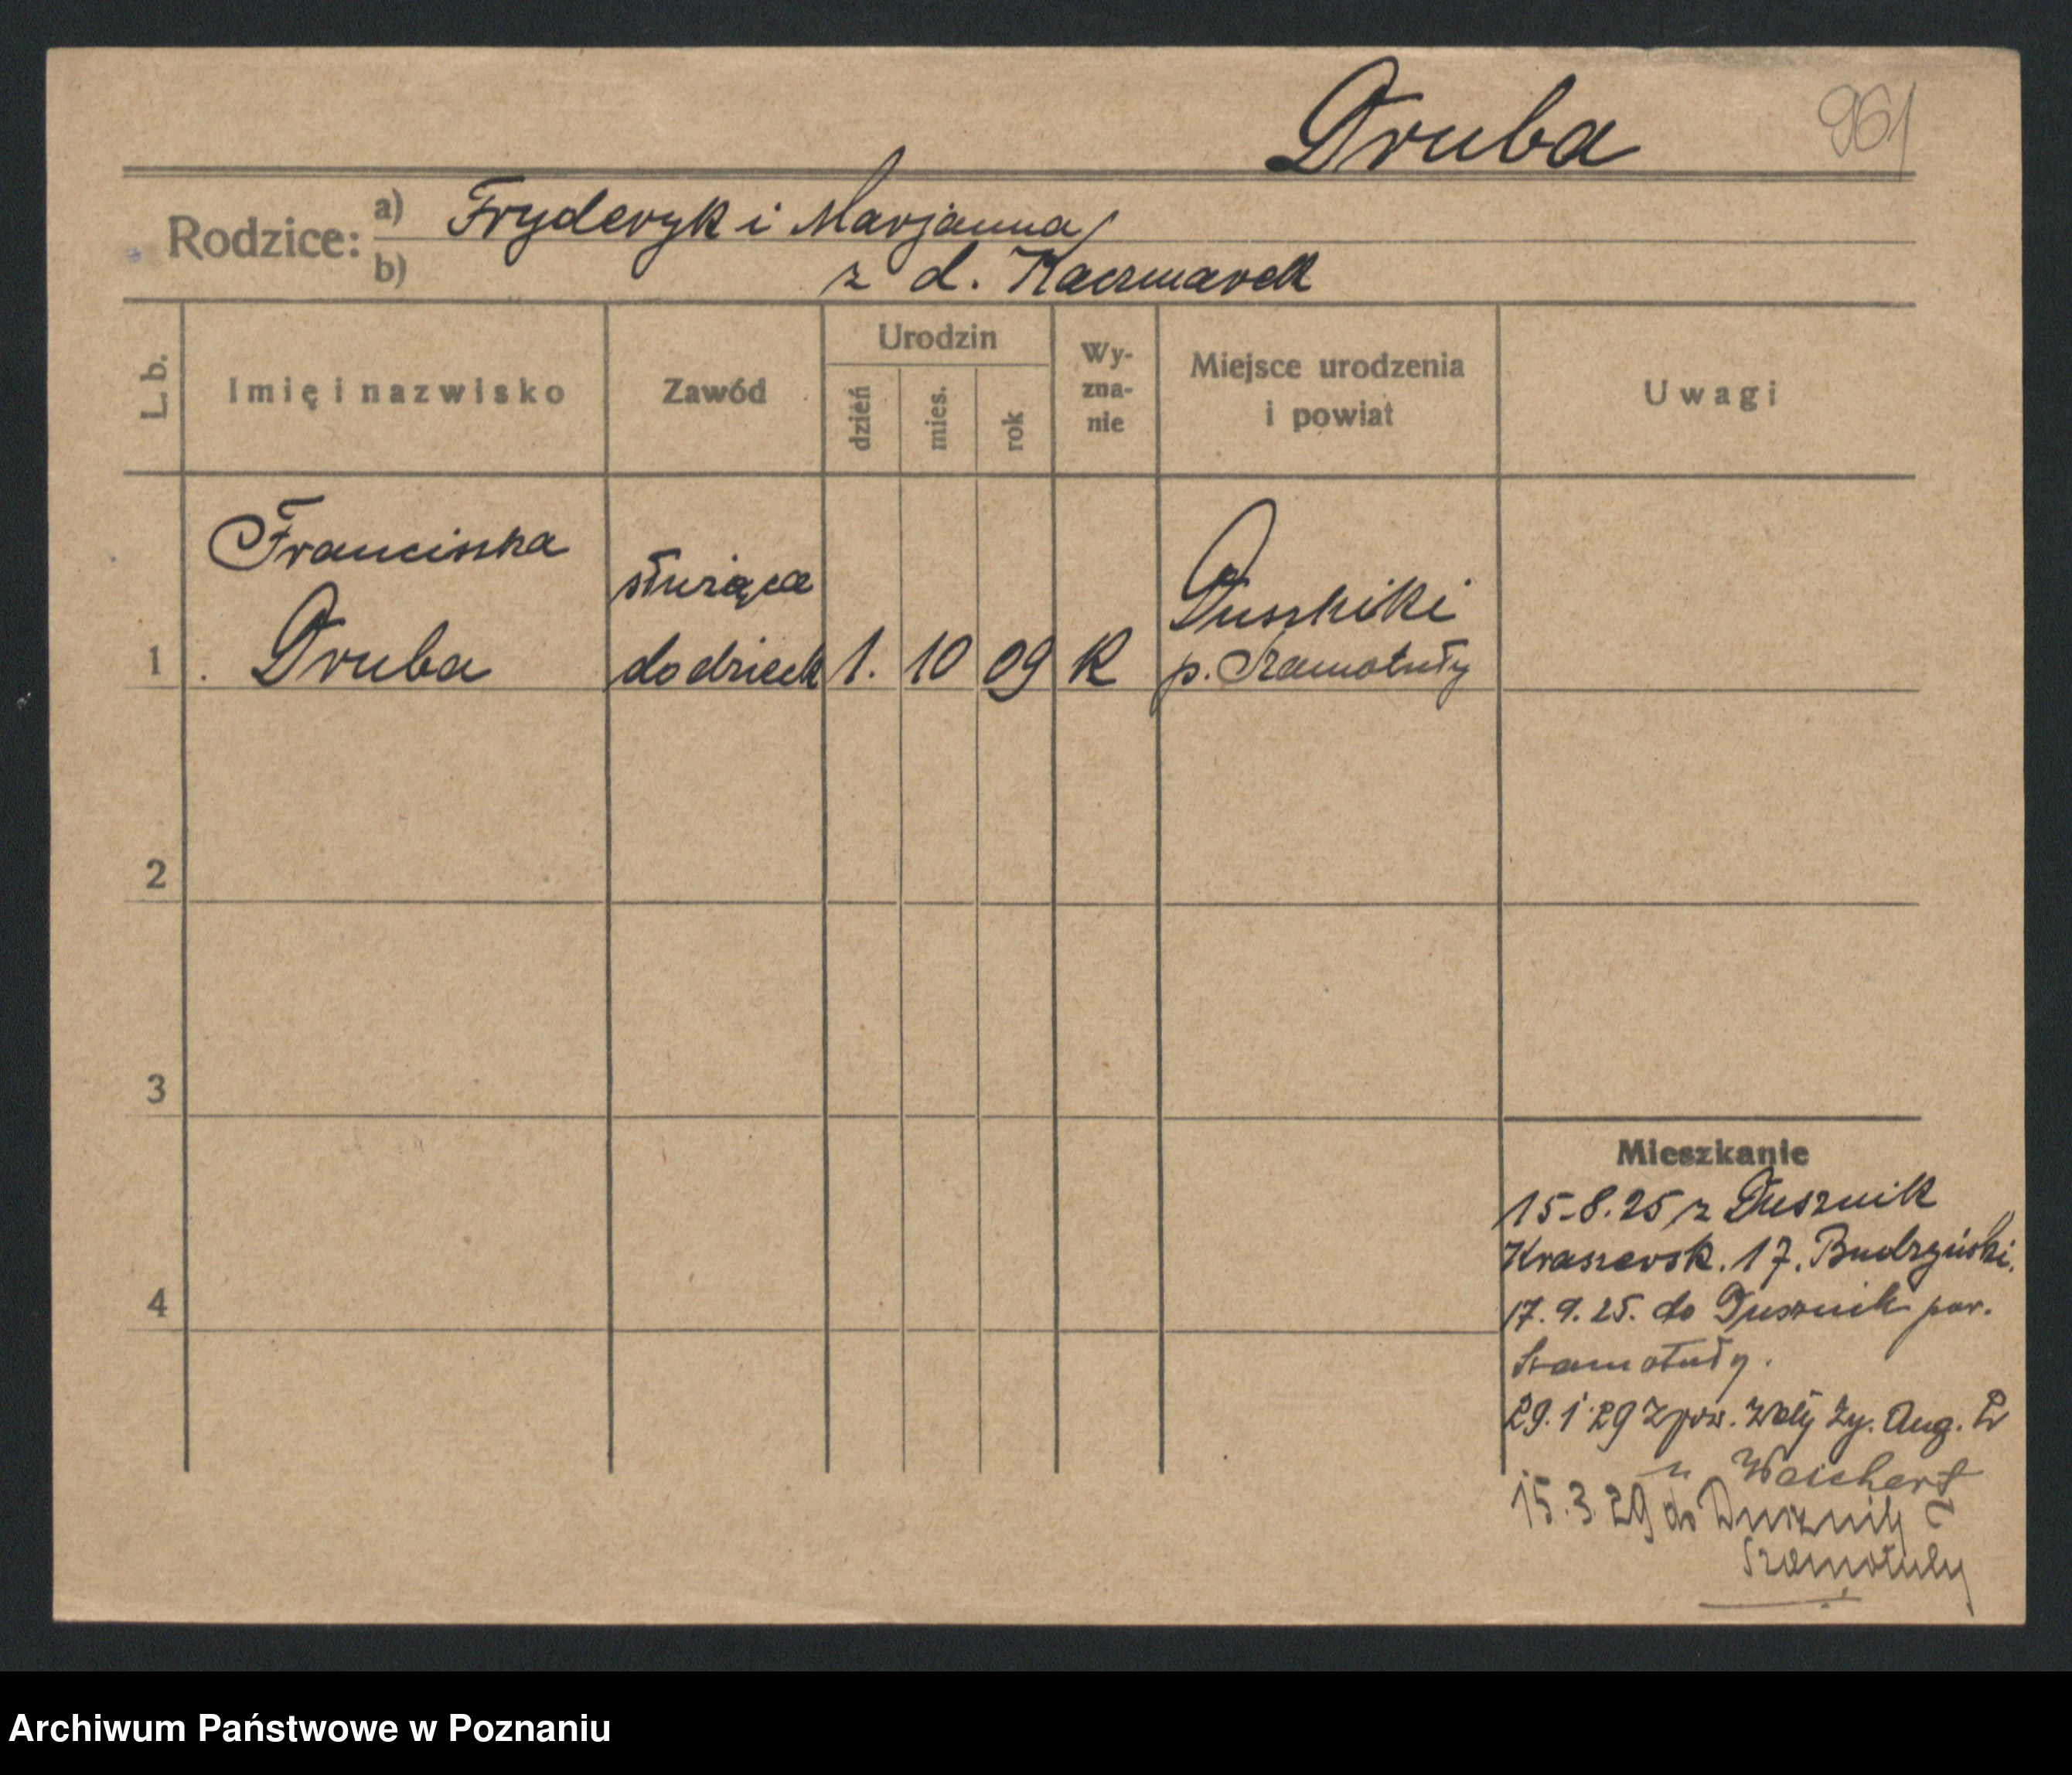 Druba 961
Rodzice: a) Fryderyk i Marjanna
b) z d. Kaczmarek
L. b. Imię i nazwisko Zawód Urodzin dzień mies. rok Wy-zna-nie Miejsce urodzenia i powiat Uwagi
Franciszka służąca Duszniki
1 Druba do dzieck 1. 10 09 K p. Szamotuły
2
3
4
Mieszkanie
15.8.25 z Dusznik
Kraszewsk. 17. Budzyński.
17.9.25. do Dusznik pow.
Szamotuły.
29.1.29 z pow. Aug.
u Weichert
15.3.29 do Duszniky
Szamotuły
Archiwum Państwowe w Poznaniu